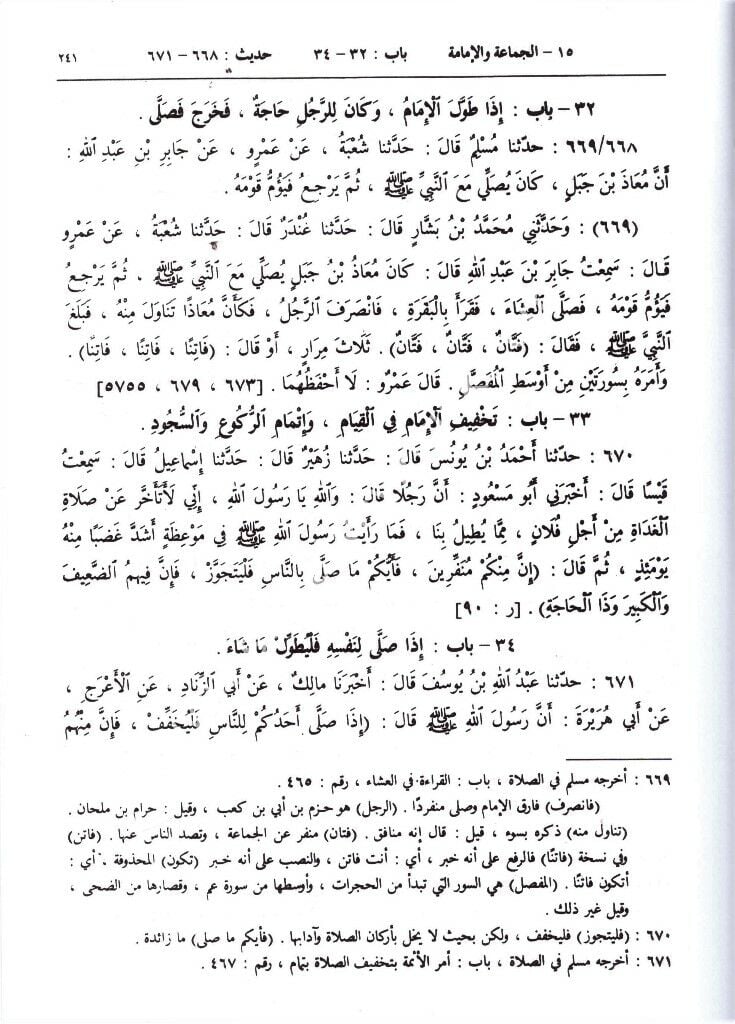 ١٥ – الجماعة والإمامة باب : ٣٢ – ٣٤ حديث : ٦٦٨ – ٦٧١ ٢٤١
٣٢ – باب : إِذَا طَوَّلَ ٱلْإِمَامُ ، وَكَانَ لِلرَّجُلِ حَاجَةٌ ، فَخَرَجَ فَصَلَّى .
٦٦٩/٦٦٨ : حدّثنا مُسْلِمٌ قَالَ : حَدَّثنا شُعْبَةُ ، عَنْ عَمْرٍو ، عَنْ جَابِرِ بْنِ عَبْدِ ٱللهِ :
أَنَّ مُعَاذَ بْنَ جَبَلٍ ، كَانَ يُصَلِّي مَعَ ٱلنَّبِيِّ ﷺ ، ثُمَّ يَرْجِعُ فَيَؤُمُّ قَوْمَهُ .
(٦٦٩) : وَحَدَّثَنِي مُحَمَّدُ بْنُ بَشَّارٍ قَالَ : حَدَّثنا غُنْدَرٌ قَالَ : حَدَّثنا شُعْبَةُ ، عَنْ عَمْرٍو
قَالَ : سَمِعْتُ جَابِرَ بْنَ عَبْدِ ٱللهِ قَالَ : كَانَ مُعَاذُ بْنُ جَبَلٍ يُصَلِّي مَعَ ٱلنَّبِيِّ ﷺ ، ثُمَّ يَرْجِعُ
فَيَؤُمُّ قَوْمَهُ ، فَصَلَّى ٱلْعِشَاءَ ، فَقَرَأَ بِالْبَقَرَةِ ، فَانْصَرَفَ ٱلرَّجُلُ ، فَكَأَنَّ مُعَاذًا تَنَاوَلَ مِنْهُ ، فَبَلَغَ
ٱلنَّبِيَّ ﷺ ، فَقَالَ : (فَتَّانٌ ، فَتَّانٌ ، فَتَّانٌ) . ثَلَاثَ مِرَارٍ ، أَوْ قَالَ : (فَاتِنًا ، فَاتِنًا ، فَاتِنًا) .
وَأَمَرَهُ بِسُورَتَيْنِ مِنْ أَوْسَطِ ٱلْمُفَصَّلِ . قَالَ عَمْرٌو : لَا أَحْفَظُهُمَا . [٦٧٣ ، ٦٧٩ ، ٥٧٥٥]
٣٣ – باب : تَخْفِيفِ ٱلْإِمَامِ فِي ٱلْقِيَامِ ، وَإِتْمَامِ ٱلرُّكُوعِ وَٱلسُّجُودِ .
٦٧٠ : حدّثنا أَحْمَدُ بْنُ يُونُسَ قَالَ : حَدَّثنا زُهَيْرٌ قَالَ : حَدَّثنا إِسْمَاعِيلُ قَالَ : سَمِعْتُ
قَيْسًا قَالَ : أَخْبَرَنِي أَبُو مَسْعُودٍ : أَنَّ رَجُلًا قَالَ : وَٱللهِ يَا رَسُولَ ٱللهِ ، إِنِّي لَأَتَأَخَّرُ عَنْ صَلَاةِ
ٱلْغَدَاةِ مِنْ أَجْلِ فُلَانٍ ، مِمَّا يُطِيلُ بِنَا ، فَمَا رَأَيْتُ رَسُولَ ٱللهِ ﷺ فِي مَوْعِظَةٍ أَشَدَّ غَضَبًا مِنْهُ
يَوْمَئِذٍ ، ثُمَّ قَالَ : (إِنَّ مِنْكُمْ مُنَفِّرِينَ ، فَأَيُّكُمْ مَا صَلَّى بِالنَّاسِ فَلْيَتَجَوَّزْ ، فَإِنَّ فِيهِمُ ٱلضَّعِيفَ
وَٱلْكَبِيرَ وَذَا ٱلْحَاجَةِ) . [ر : ٩٠]
٣٤ – باب : إِذَا صَلَّى لِنَفْسِهِ فَلْيُطَوِّلْ مَا شَاءَ .
٦٧١ : حدّثنا عَبْدُ ٱللهِ بْنُ يُوسُفَ قَالَ : أَخْبَرَنَا مَالِكٌ ، عَنْ أَبِي ٱلزِّنَادِ ، عَنِ ٱلْأَعْرَجِ ،
عَنْ أَبِي هُرَيْرَةَ : أَنَّ رَسُولَ ٱللهِ ﷺ قَالَ : (إِذَا صَلَّى أَحَدُكُمْ لِلنَّاسِ فَلْيُخَفِّفْ ، فَإِنَّ مِنْهُمُ
٦٦٩ : أخرجه مسلم في الصلاة ، باب : القراءة في العشاء ، رقم : ٤٦٥ .
(فانصرف) فارق الإمام وصلى منفردًا . (الرجل) هو حزم بن أبي بن كعب ، وقيل : حرام بن ملحان .
(تناول منه) ذكره بسوء ، قيل : قال إنه منافق . (فتان) منفر عن الجماعة ، وتصد الناس عنها . (فاتن)
وفي نسخة (فاتنًا) فالرفع على أنه خبر ، أي : أنت فاتن ، والنصب على أنه خبر (تكون) المحذوفة ، أي :
أتكون فاتنًا . (المفصل) هي السور التي تبدأ من الحجرات ، وأوسطها من سورة عم ، وقصارها من الضحى ،
وقيل غير ذلك .
٦٧٠ : (فليتجوز) فليخفف ، ولكن بحيث لا يخل بأركان الصلاة وآدابها . (فأيكم ما صلى) ما زائدة .
٦٧١ : أخرجه مسلم في الصلاة ، باب : أمر الأئمة بتخفيف الصلاة بتمام ، رقم : ٤٦٧ .